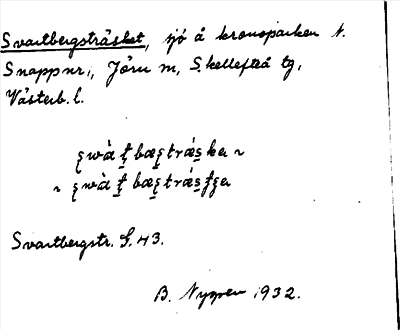 Svartbergsträsket, sjö å kronoparken N.
Snappnr., Jörn sn, Skellefteå tg,
Västerb. l.
ʂwàṯ bæʂtráska ~
~ ʂwàṯ bæʂtrás
Svartbergstr. S. 43.
B. Nyman 1932.